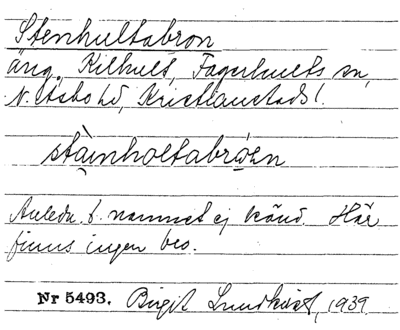 Stenhultabron
äng. Kilhult, Fagerhults sn,
N. Åsbo hd, Kristianstads l.
stàinholtabrǫen
Anledn. t. namnet ej känd. Här
finns ingen bro.
Nr 5493. Birgit Lundkvist, 1939